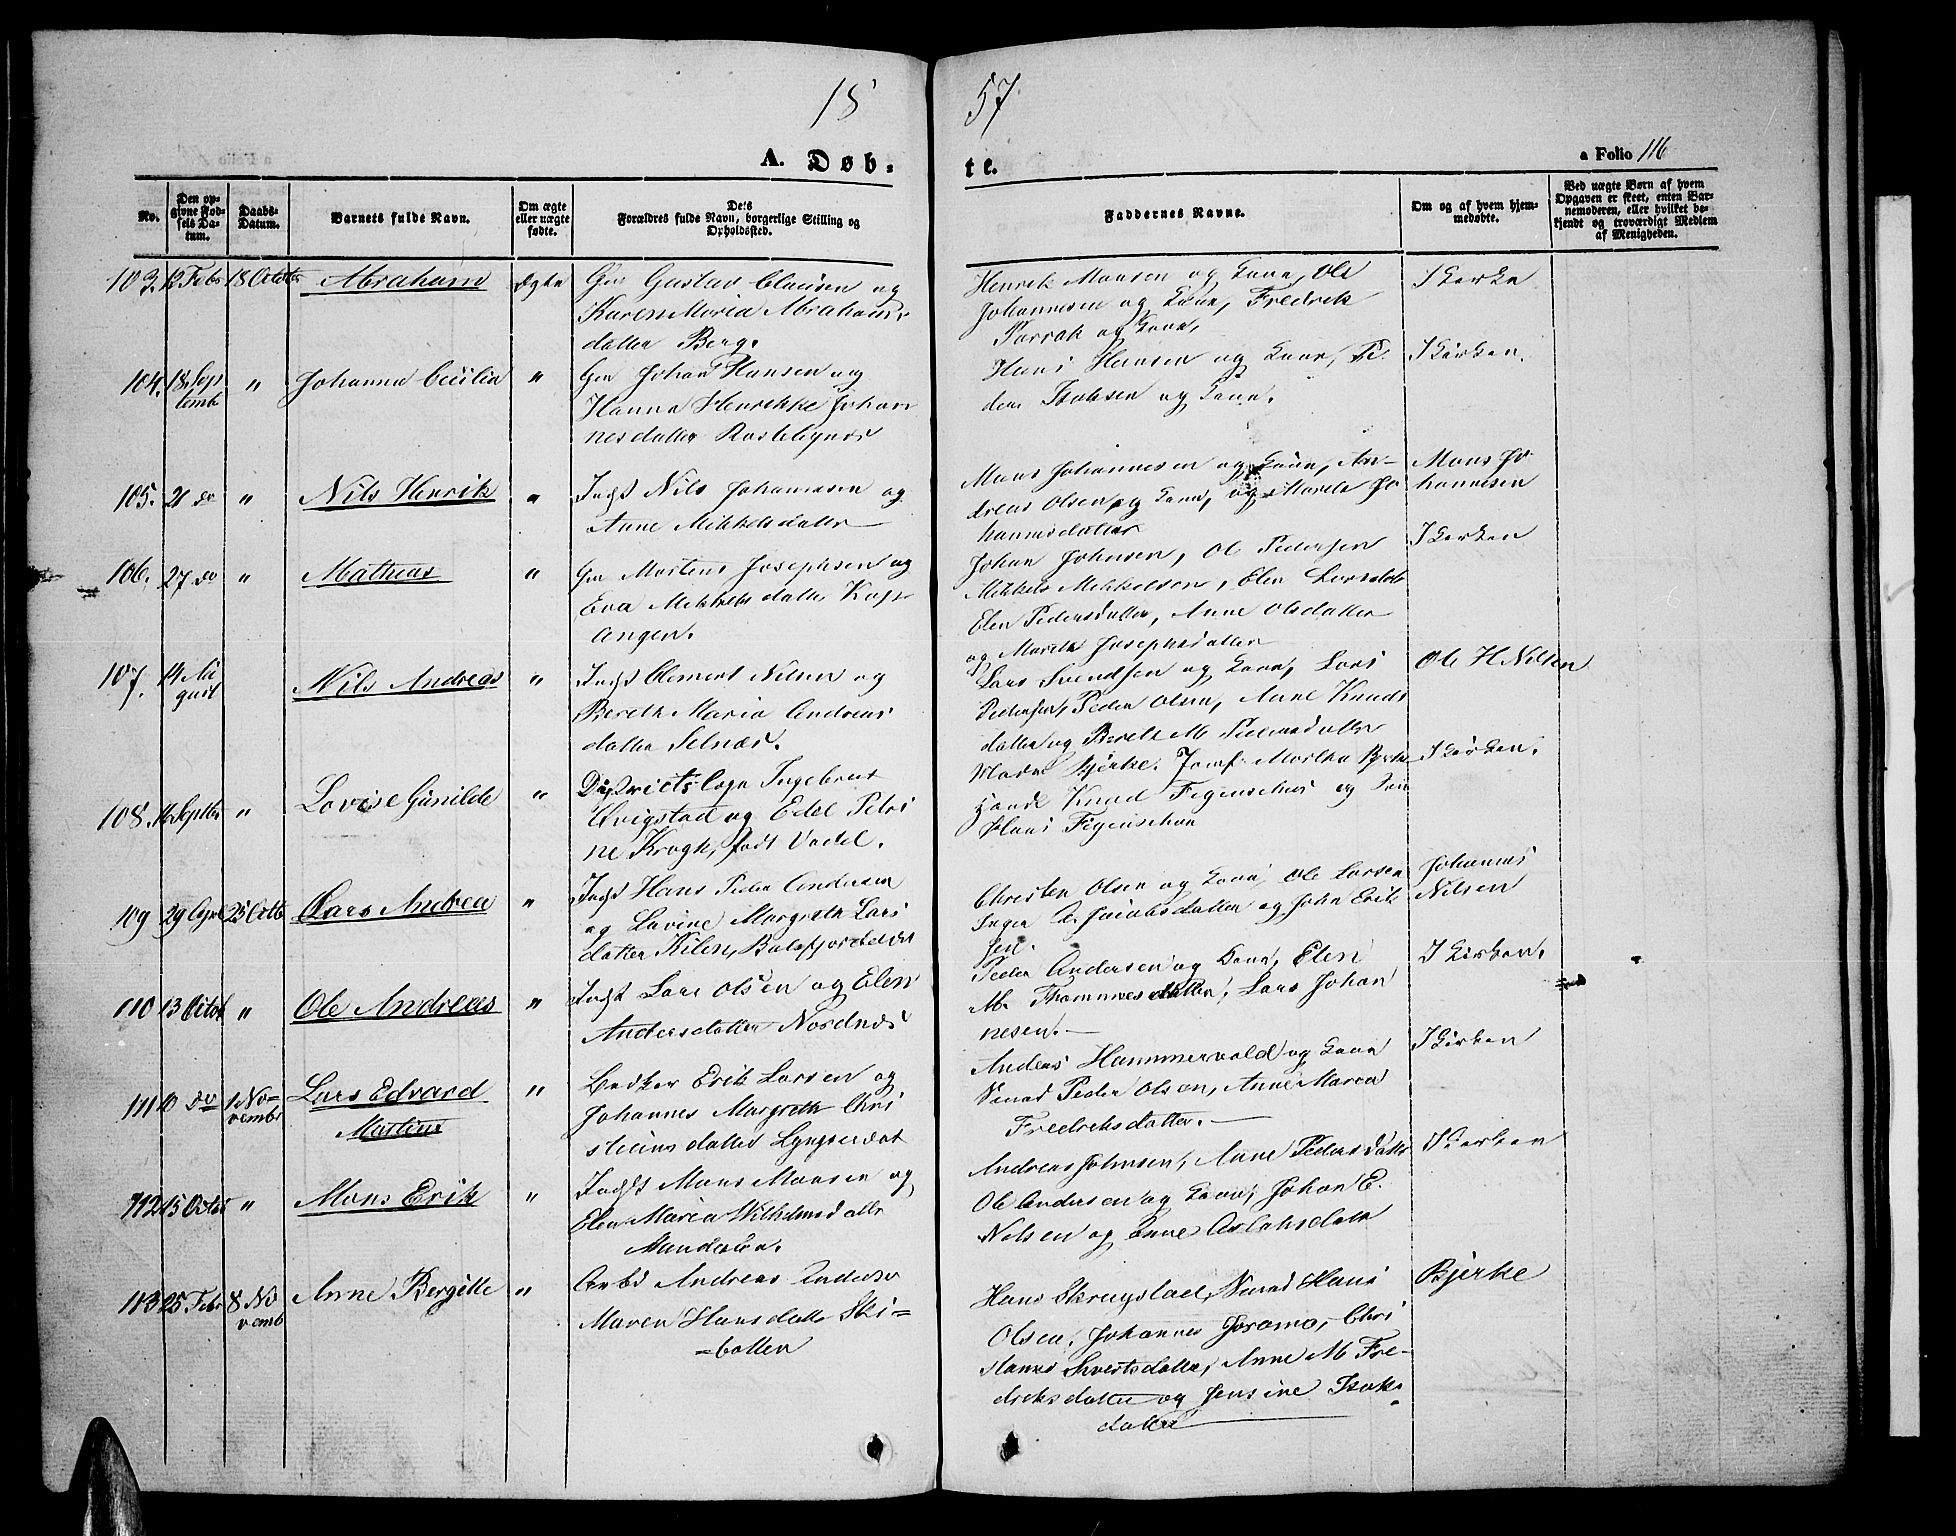 18 57
A. Døb- te.
a Folio 116
No.
Den op-
givne Fød-
sels Da-
tum.
Daabs-
Datum.
Barnets fulde Navn.
Om ægte
eller uægte
fødte.
Dets
Forældres fulde Navn, borgerlige Stilling og
Opholdssted.
Faddernes Navne.
Om og af hvem hjem-
medøbte.
Ved uægte Børn af hvem
Opgaven er skeet, enten Bar-
nemoderen, eller hvilket be-
kjendt og troværdigt Medlem
af Menigheden.
103. 12 Febr 18 Octobr Abraham ægte
Gm Gustav Clausen og
Karen Maria Abrahams
datter Berg.
Henrik Monsen og Kone, Ole
Johannesen og Kone, Fredrik
og Kone,
I Kirken
104. 18 Sep
temb " Johanna Cecilia "
Gm Johan Hansen og
Hanna Henrikke Johan
nesdatter
Hans Hansen og Kone, Pe
der Isaksen og Kone.
I Kirken.
105. 21 do " Nils Henrik "
Indst Nils Johannesen og
Anne Mikkelsdatter
Mons Johannesen og Kone, An-
dreas Olsen og Kone, og Marith Jo
hannesdatter
Mons Jo
hannesen
106. 27 do " Mathias "
Gm Morten Josephsen og
Eva Mikkelsdatter Kaf
angen.
Johan Johnsen, Ole Pedersen
Mikkel Mikkelsen, Elen Larsdatr
Elen Pedersdatter, Anne Olsdatter
og Marith Josephsdatter
I Kirken
107. 14 Au
gust Nils Andreas "
Indst Clement Nilsen og
Bereth Maria Andreas
datter Selnæs.
Lars Svendsen og Kone, Lars
Pedersen, Peder Olsen, Anne Knuds
datter og Bereth M Pedersdatter
Ole H Nilsen
108. 14 Septbr " Lovise Gunilde "
Districtslæge Ingebret
Qvigstad og Edel Petri
ne Krogh, født Vadel.
Madm Bjerke. Jomf. Martha Bjerke
Handl Knud Figenschou og
Hans Figenschou
I Kirken.
109 29 April 25 Octb Lars Andrea "
Indst Hans Peder Andersen
og Lavine Margreth Lars
datter Kilen, Balsfjordeidet
Christen Olsen og Kone, Ole Larsen
Inger A. Jacobsdatter og John Erik
sen.
Johannes
Nilsen
110 13 Octob " Ole Andreas "
Indst Lars Olsen og Elen
Andersdatter Nordnæs
Peder Andersen og Kone, Elen
M. Thommesdatter, Lars Johan
nesen.
I Kirken.
111 10 do 1 No-
vembr Lars Edvard
Martin "
Bødker Erik Larsen og
Johannes Margreth Chri
stiansdatter Lyngseidet
Anders Hammervold og Kone
Peder Olsen, Anne Marea
Fredriksdatter.
I Kirken
112 15 Octbr " Mons Erik "
Indst Mons Monsen og
Elen Marea Wilhelmsdatter
Mandalen.
Andreas Johnsen, Anne Pedersdatter
Ole Andersen og Kone, Johan E.
Nilsen og Anne Aslaksdatter
I Kirken
113 25 Febr 8 No
vemb Anne Bergitte "
Arbd Andreas Anderson
Maren Hansdatter Ski=
=botten
Hans Skrugstad, Hans
Olsen, Johannes Joramo, Chri
Sivertsdatter, Anne M Fre-
driksdatter og Jensine Isaks
datter
Bjerke